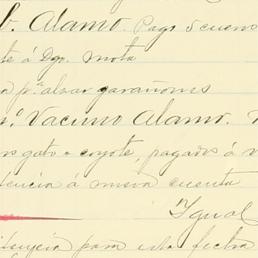 b. Alamo. Pago 5 cueros
te á Dgo. Mota
a pa. alzar garañones
o. Vacuno Alamo.
gato o coyote, pagados á
tencia á nueva cuenta
Igual
istencia para esta fecha